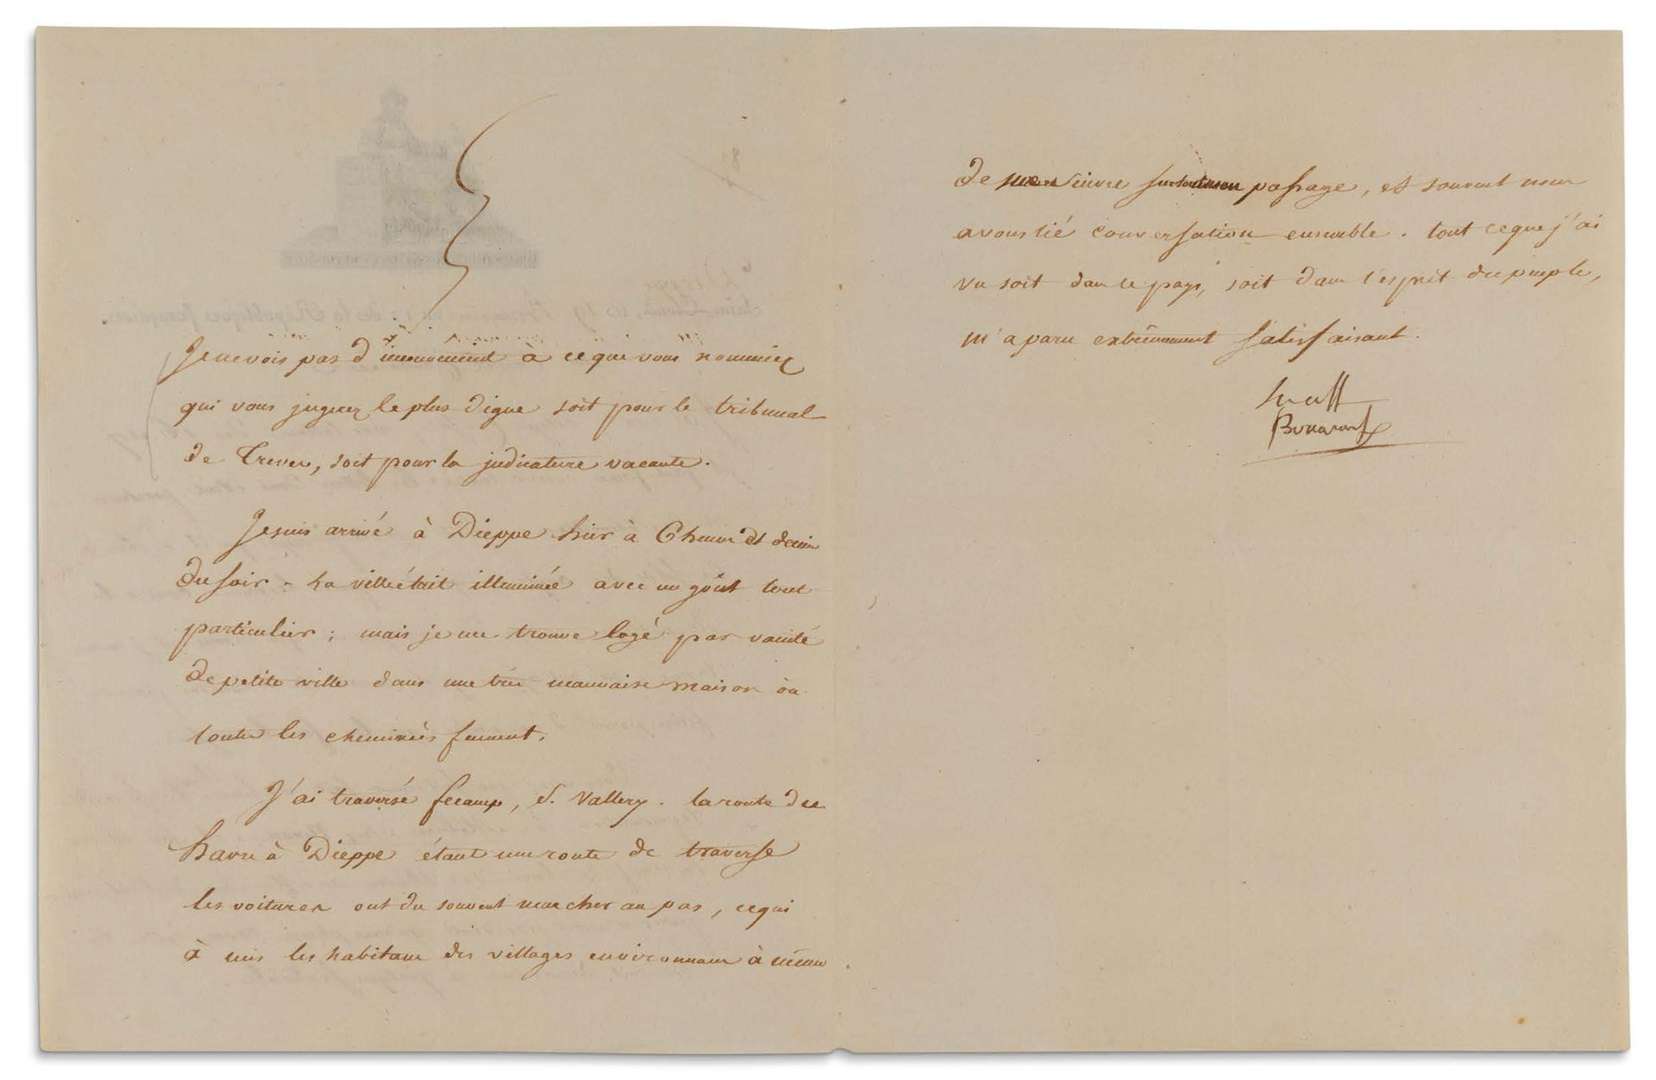 Je ne vois pas d'inconvénient à ce que vous nommiez
qui vous jugerez le plus digne soit pour le tribunal
de Treves, soit pour la judicature vacante.
Je suis arrivé à Dieppe hier à 6 heures et demie
du soir. La ville était illuminée avec un goût tout
particulier; mais je me trouve logé par vanité
de petite ville dans une très mauvaise maison où
toutes les cheminées fument.
J'ai traversé fecamp, S. Vallery. la route du
havre à Dieppe étant une route de traverse
les voitures ont du souvent marcher au pas, ce qui
à mis les habitans des villages environnans à même
de me suivre sur mon passage, et souvent nous
avons lié conversation ensemble. tout ce que j'ai
vu soit dans le pays, soit dans l'esprit du peuple,
m'a paru extrêmement satisfaisant.
Bonaparte